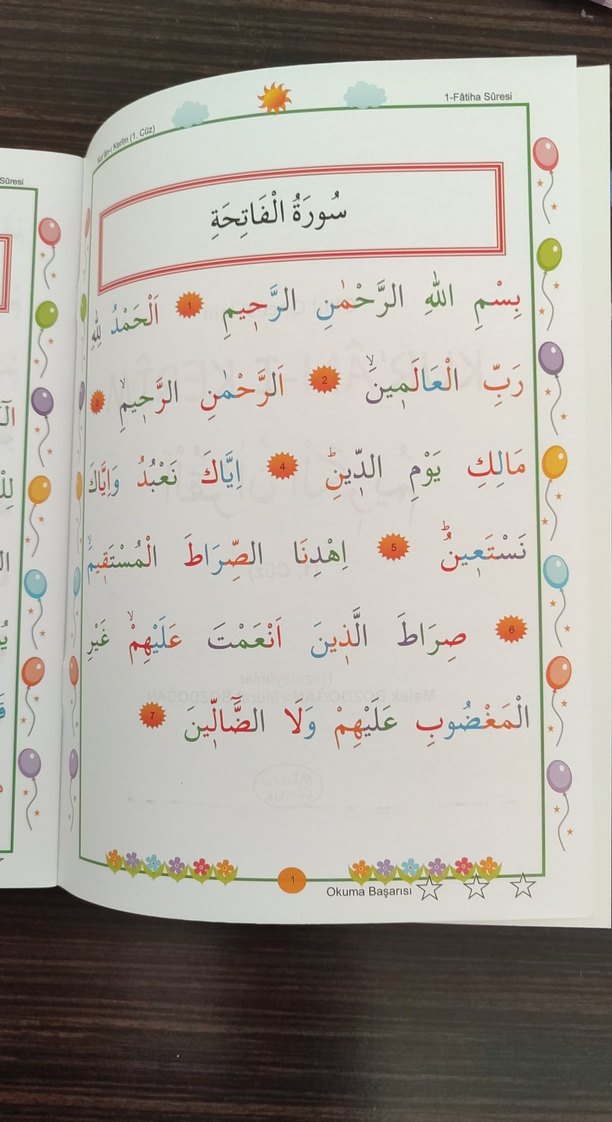 Kur'ân-ı Kerîm (1. Cüz)
1-Fâtiha Sûresi
سُورَةُ الْفَاتِحَةِ
بِسْمِ اللّٰهِ الرَّحْمٰنِ الرَّحٖيمِ 1 اَلْحَمْدُ لِلّٰهِ
رَبِّ الْعَالَمٖينَۙ 2 اَلرَّحْمٰنِ الرَّحٖيمِۙ 3
مَالِكِ يَوْمِ الدّٖينِؕ 4 اِيَّاكَ نَعْبُدُ وَاِيَّاكَ
نَسْتَعٖينُؕ 5 اِهْدِنَا الصِّرَاطَ الْمُسْتَقٖيمَۙ
6 صِرَاطَ الَّذٖينَ اَنْعَمْتَ عَلَيْهِمْۙ غَيْرِ
الْمَغْضُوبِ عَلَيْهِمْ وَلَا الضَّٓالّٖينَ 7
1
Okuma Başarısı
Sûresi